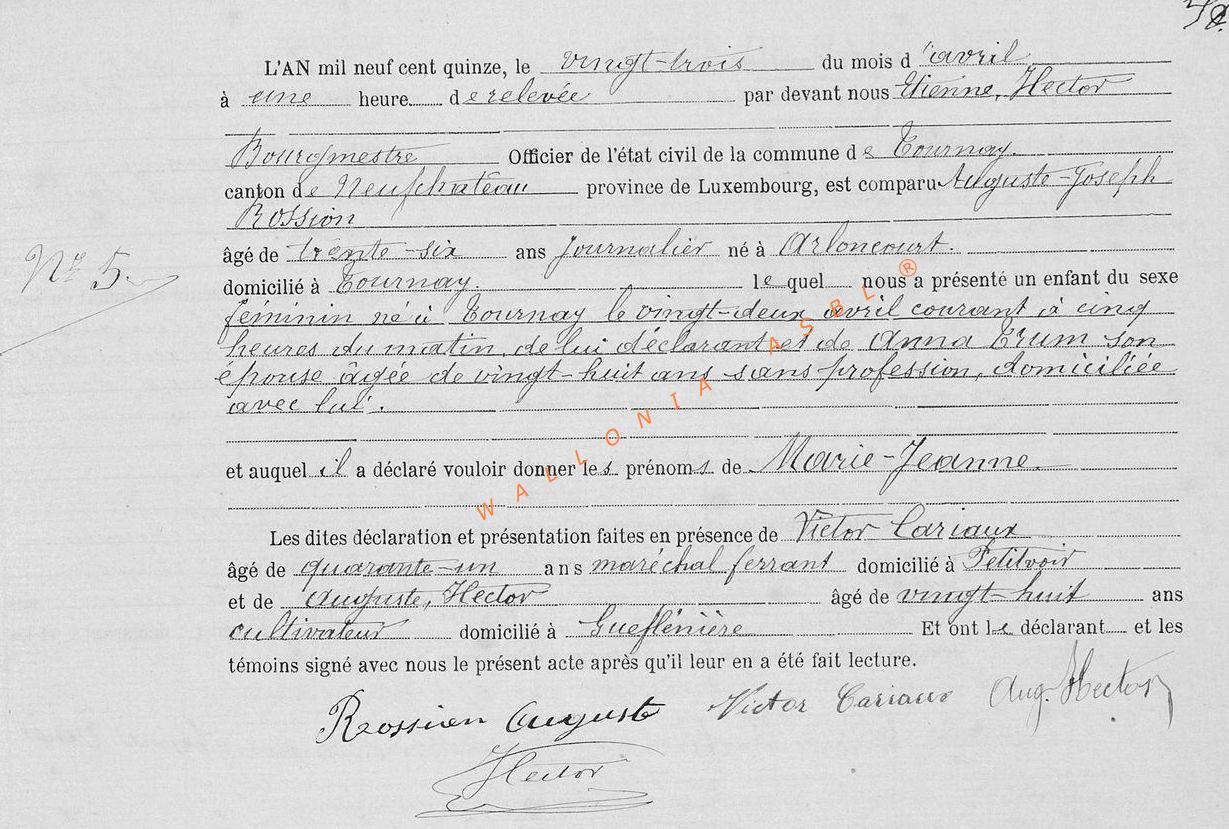 L'AN mil neuf cent quinze, le vingt-trois du mois d'avril
à une heure de relevée par devant nous Etienne, Hector
Bourgmestre Officier de l'état civil de la commune de Tournay.
canton de Neufchateau province de Luxembourg, est comparu Auguste-Joseph
Rossion
âgé de trente-six ans journalier né à Arloncourt.
N° 5
domicilié à Tournay. lequel nous a présenté un enfant du sexe
féminin né à Tournay le vingt-deux avril courant à cinq
heures du matin, de lui déclarant et de Anna Trum son
épouse âgée de vingt-huit ans sans profession, domiciliée
avec lui.
et auquel il a déclaré vouloir donner les prénoms de Marie-Jeanne.
WALLONIA ASBL®
Les dites déclaration et présentation faites en présence de Victor Cariaux
âgé de quarante-un ans maréchal ferrant domicilié à Petitvoir
et de Auguste, Hector âgé de vingt-huit ans
cultivateur domicilié à Gueflénière Et ont le déclarant et les
témoins signé avec nous le présent acte après qu'il leur en a été fait lecture.
Rossion Auguste Victor Cariaux Aug. Hector
Hector